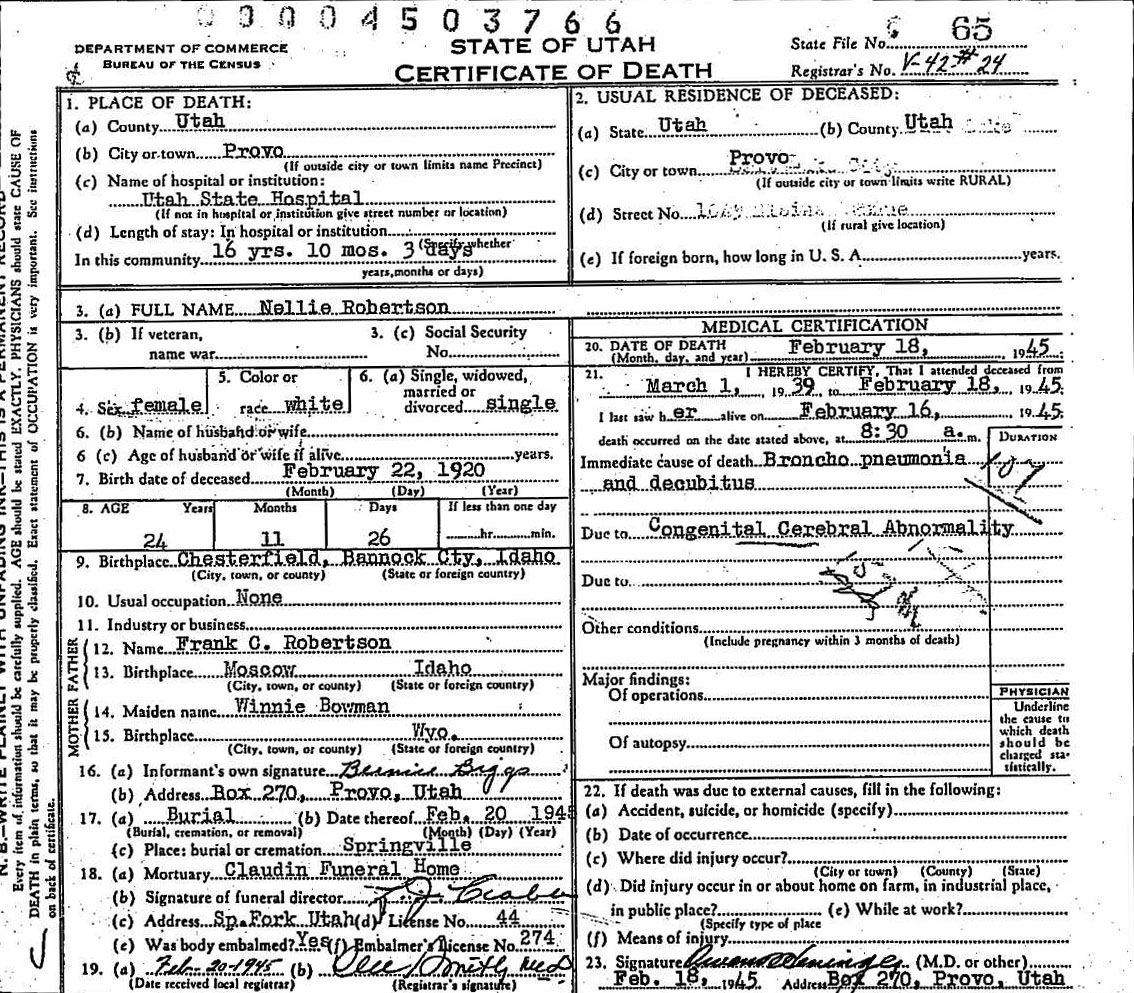 00004503766
DEPARTMENT OF COMMERCE
BUREAU OF THE CENSUS
STATE OF UTAH
CERTIFICATE OF DEATH
State File No. 65
Registrar's No. V-42 # 24
N. B.—WRITE PLAINLY WITH UNFADING INK—THIS IS A PERMANENT RECORD
Every item of information should be carefully supplied. AGE should be stated EXACTLY. PHYSICIANS should state CAUSE OF
DEATH in plain terms, so that it may be properly classified. Exact statement of OCCUPATION is very important. See instructions
on back of certificate.
1. PLACE OF DEATH:
(a) County Utah
(b) City or town Provo
(If outside city or town limits name Precinct)
(c) Name of hospital or institution:
Utah State Hospital
(If not in hospital or institution give street number or location)
(d) Length of stay: In hospital or institution
(Specify whether
In this community 16 yrs. 10 mos. 3 days
years, months or days)
2. USUAL RESIDENCE OF DECEASED:
(a) State Utah (b) County Utah
(c) City or town Provo
(If outside city or town limits write RURAL)
(d) Street No.
(If rural give location)
(e) If foreign born, how long in U. S. A. years.
3. (a) FULL NAME Nellie Robertson
3. (b) If veteran, name war
3. (c) Social Security No.
4. Sex female
5. Color or race white
6. (a) Single, widowed, married or divorced single
6. (b) Name of husband or wife
6 (c) Age of husband or wife if alive years.
7. Birth date of deceased February 22, 1920
(Month) (Day) (Year)
8. AGE Years Months Days If less than one day
24 11 26 hr. min.
9. Birthplace Chesterfield, Bannock Cty, Idaho
(City, town, or county) (State or foreign country)
10. Usual occupation None
11. Industry or business
FATHER
12. Name Frank C. Robertson
13. Birthplace Moscow Idaho
(City, town, or county) (State or foreign country)
MOTHER
14. Maiden name Winnie Bowman
15. Birthplace Wyo.
(City, town, or county) (State or foreign country)
16. (a) Informant's own signature Bernice Biggs
(b) Address Box 270, Provo, Utah
17. (a) Burial (b) Date thereof Feb. 20 1945
(Burial, cremation, or removal) (Month) (Day) (Year)
(c) Place: burial or cremation Springville
18. (a) Mortuary Claudin Funeral Home
(b) Signature of funeral director
(c) Address Sp.Fork Utah (d) License No. 44
(e) Was body embalmed? Yes (f) Embalmer's License No. 274
19. (a) Feb-20-1945 (b) Smith MD
(Date received local registrar) (Registrar's signature)
MEDICAL CERTIFICATION
20. DATE OF DEATH February 18, 1945.
(Month, day, and year)
21. I HEREBY CERTIFY, That I attended deceased from
March 1, 1939 to February 18, 1945.
I last saw her alive on February 16, 1945.
death occurred on the date stated above, at 8:30 a.m.
DURATION
Immediate cause of death Broncho pneumonia
and decubitus
107
Due to Congenital Cerebral Abnormality
Due to
Other conditions
(Include pregnancy within 3 months of death)
Major findings:
Of operations
Of autopsy
PHYSICIAN
Underline
the cause to
which death
should be
charged sta-
tistically.
22. If death was due to external causes, fill in the following:
(a) Accident, suicide, or homicide (specify)
(b) Date of occurrence
(c) Where did injury occur?
(City or town) (County) (State)
(d) Did injury occur in or about home on farm, in industrial place,
in public place? (e) While at work?
(Specify type of place
(f) Means of injury
23. Signature (M.D. or other)
Feb. 18, 1945. Address Box 270, Provo, Utah